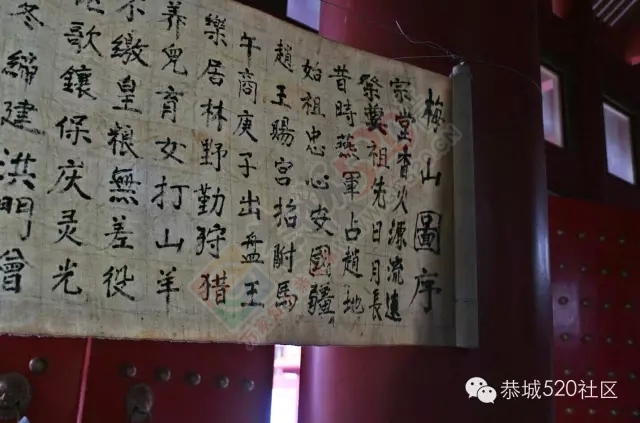 梅山圖序
宗堂香火源流遠
祭奠祖先日月長
昔時燕軍占趙地
始祖忠心安國疆
趙王賜宫招附馬
午商庚子出盘王
樂居林野勤狩猎
养兒育女打山羊
不缴皇粮無差役
歌鑲保庆灵光
冬締建洪門曾
恭城520社区